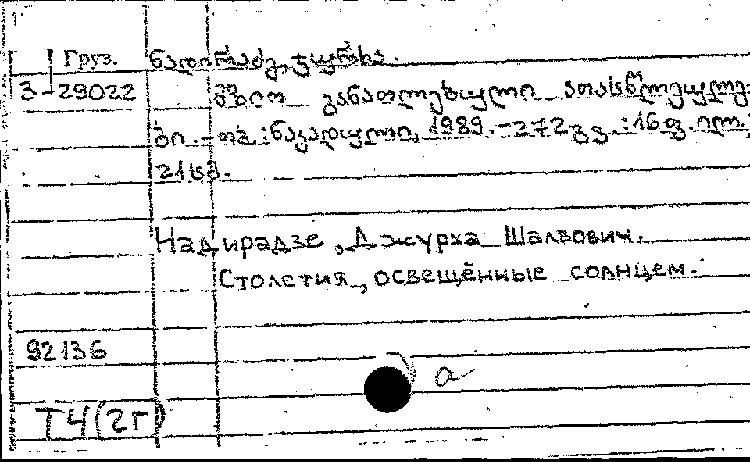 Груз. ნადირაძე, ჯურხა.
3-29022 მზით განათლებული ათასწლეულე-
ბი.-თბ.:ნაკადული, 1989.-272გვ.:16ფ.ილ.;
21სმ.
Надирадзе, Джурха Шалвович.
Столетия, освещённые солнцем.
92136
а
Т4(2Г)